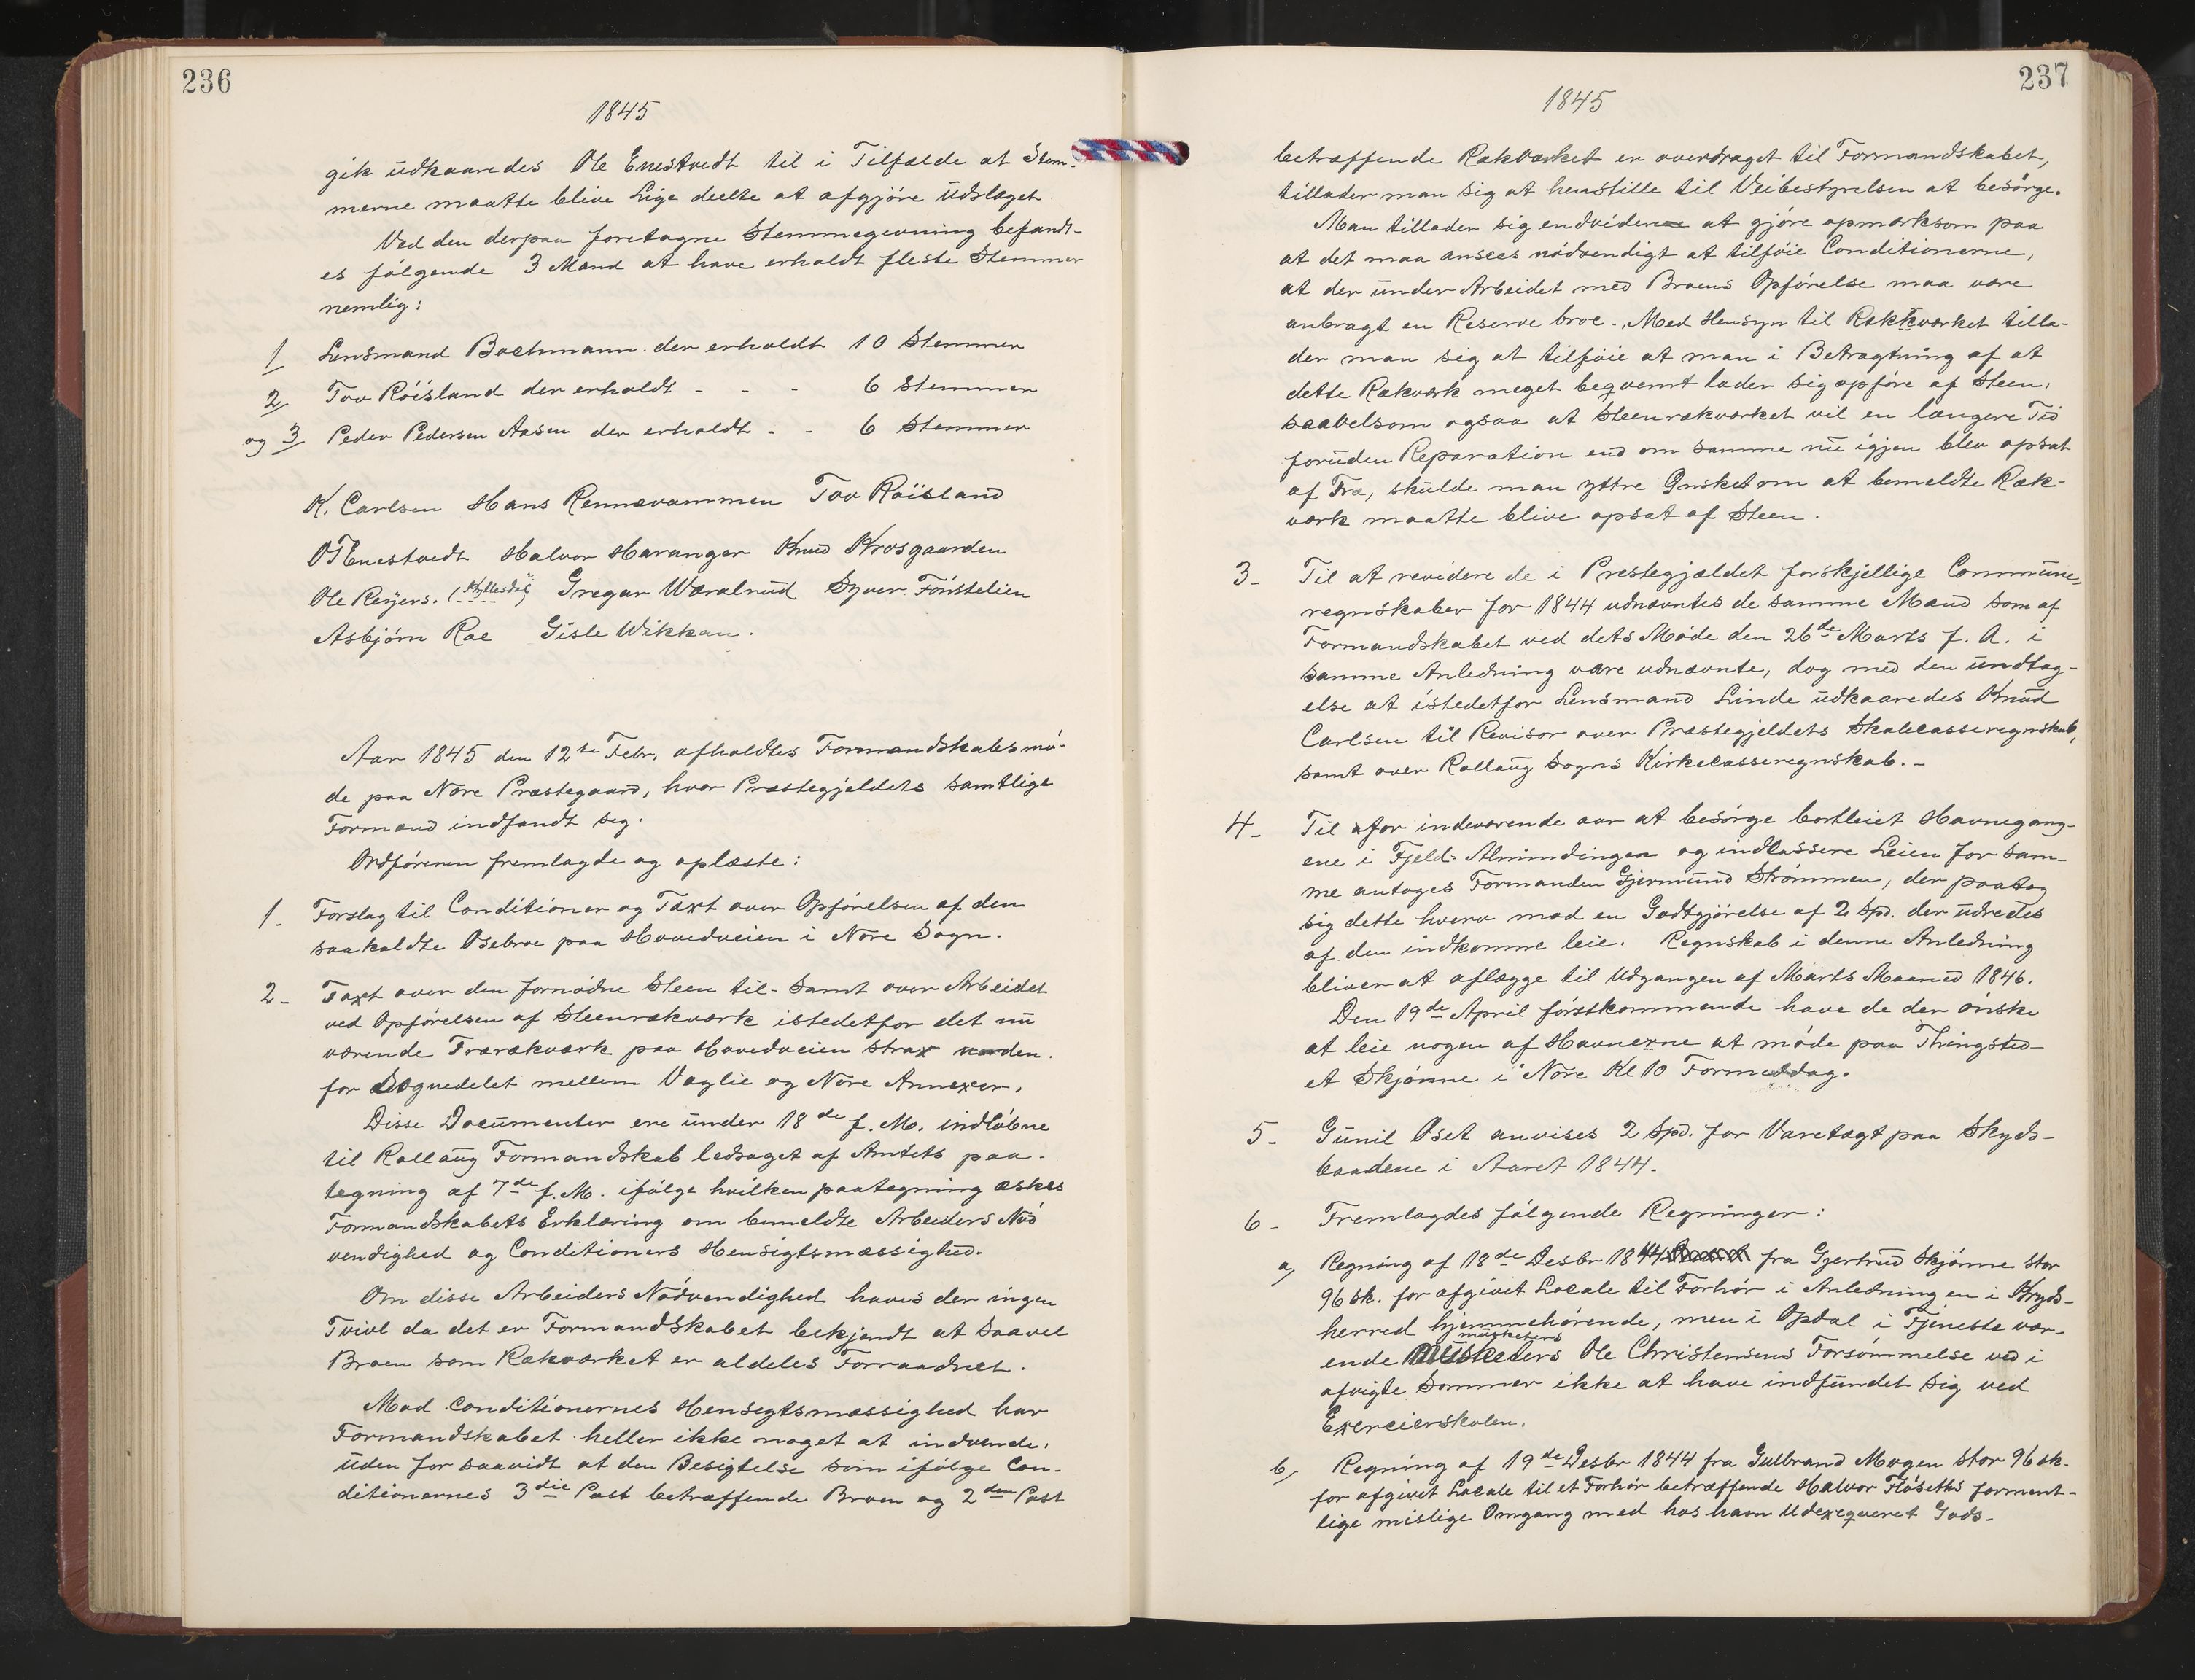 236
1845
gik udkaaredes Ole Enestvedt til i Tilfælde at Stem-
merne maatte blive Lige deelte at afgjøre Udslaget
Ved den derpaa foretagne Stemmegivning befandt-
es følgende 3 Mænd at have erholdt fleste Stemmer
nemlig:
1 Lensmand Bachmann der erholdt 10 Stemmer
2 Tov Röisland der erholdt - - - 6 Stemmer
og 3 Peder Pedersen Aasen der erholdt - - 6 Stemmer
K. Carlsen Hans Rennevammen Tov Röisland
O Enestvedt Halvor Haranger Knud Krosgaarden
Ole Reyers. (Kyllesdal) Gregar Wæralrud Syver Fönstelien
Asbjörn Roe Gisle Wikkan.
Aar 1845 den 12te Febr. afholdtes Formandskabsmö-
de paa Nore Præstegaard, hvor Præstegjeldets samtlige
Formænd indfandt seg.
Ordföreren fremlagde og oplæste:
1. Forslag til Conditioner og Taxt over Opförelsen af den
saakaldte Osebroe paa Hovedveien i Nore Sogn.
2- Taxt over den fornödne Steen til- samt over Arbeidet
ved Opförelsen af Steenrækværk istedetfor det nu
værende Trærækværk paa Hovedveien strax norden.
for Sognedelet mellem Væglie og Nore Annexer.
Disse Documenter ere under 18de f. M. indlöbne
til Rollaug Formandskab ledsaget af Amtets paa-
tegning af 7de f. M. ifölge hvilken paategning æskes
Formandskabets Erklæring om bemeldte Arbeiders Nöd
vendighed og Conditioners Hensigtsmæssighed.
Om disse Arbeiders Nödvendighed haves der ingen
Tvivl da det er Formandskabet bekjendt at saavel
Broen som Rækværket er aldeles Forraadnet.
Mod Conditionernes Hensegtsmæssighed har
Formandskabet heller ikke noget at indvende,
uden for saavidt at den Besigtelse som ifölge Con-
ditionernes 3die Post betræffende Broen og 2den Post
237
1845
betræffende Rækværket er overdraget til Formandskabet,
tillader man sig at henstille til Veibestyrelsen at besörge.
Man tillader sig endvidere at gjöre opmærksom paa
at det maa ansees nödvendigt at tilföie Conditionerne,
at der under Arbeidet med Broens Opförelse maa være
anbragt en Reserve broe. Med Hensyn til Rækkværket tilla-
der man sig at tilföie at man i Betragtning af at
dette Rækværk meget beqvemt lader sig opföre af Steen,
saavelsom ogsaa at Steenrækværket vil en længere Tid
foruden Reparation end om samme nu igjen blev opsat
af Træ, skulde man yttre Önsket om at bemeldte Ræk-
værk maatte blive opsat af Steen.
3- Til at revidere de i Prestegjældet forskjellige Commune,
regnskaber for 1844 udnævntes de samme Mænd som af
Formandskabet ved dets Möde den 26de Marts f. A. i
samme Anledning være udnævnte, dog med den undtag-
else at istedetfor Lensmand Linde udkaaredes Knud
Carlsen til Revisor over Præstegjeldets Skolecasseregnskab,
samt over Rollaug Sogns Kirkecasseregnskab.-
4- Til for indeværende aar at besörge bortleiet Havnegang-
ene i Fjeld-Almindingen og indkassere Leien for sam-
me antoges Formanden Gjermund Strömmen, der paatog
sig dette hverv mod en Godtgjörelse af 2 Spd. der udredes
af den indkomne leie. Regnskab i denne Anledning
bliver at aflægge til Udgangen af Marts Maaned 1846.
Den 19de April förstkommende have de der önske
at leie nogen af Havnerne at möde paa Thingsted-
et Skjönne i Nore Kl 10 Formeddag.
5- Gunil Oset anvises 2 Spd. for Varetægt paa Skyds-
baadene i Aaret 1844.
6- Fremlagdes følgende Regninger:
a, Regning af 18de Desbr 1844 fra Gjertrud Skjönne stor
96 sk. for afgivit Locale til Forhör i Anledning en i Kryds-
herred hjemmehörende, men i Opdal i Tjeneste vær-
musketers
ende Musketers Ole Christensens Forsömmelse ved i
afvigte Sommer ikke at have indfundet sig ved
Exercierskolen.
b, Regning af 19de Desbr 1844 fra Gulbrand Mogen stor 96 sk.
for afgivit Locale til et Forhör betræffende Halvor Flöseths forment-
lige mislige Omgang med hos ham Udexeqveret Gods-